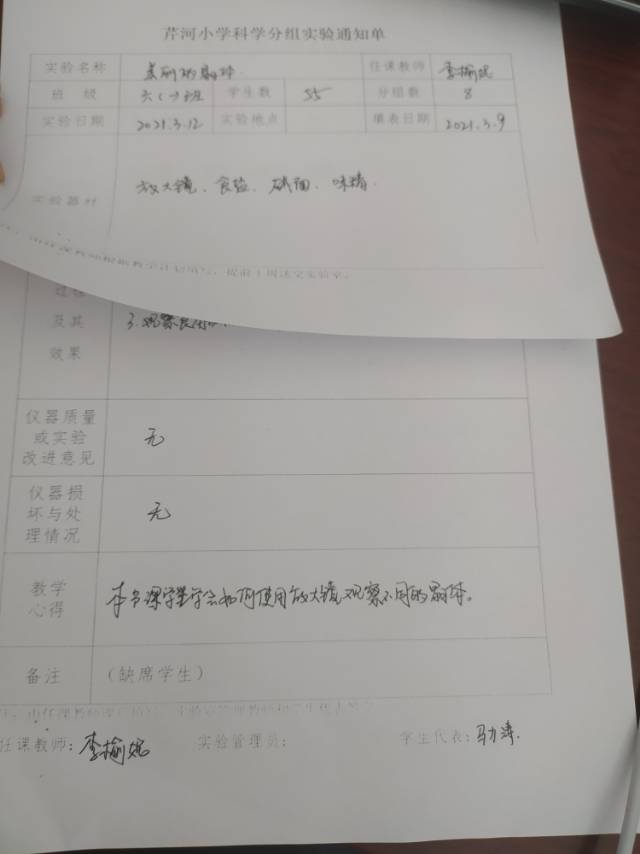 芹河小学科学分组实验通知单
实验名称 美丽的晶体 任课教师 李榆妮
班级 六(一)班 学生数 55 分组数 8
实验日期 2021.3.12 实验地点 填表日期 2021.3.9
实验器材 放大镜、食盐、碱面、味精
过程
及其
效果
3.观察
仪器质量
或实验
改进意见
无
仪器损
坏与处
理情况
无
教学
心得
本节课学生学会如何使用放大镜观察不同的晶体。
备注 (缺席学生)
任课教师: 李榆妮 实验管理员: 学生代表: 马涛